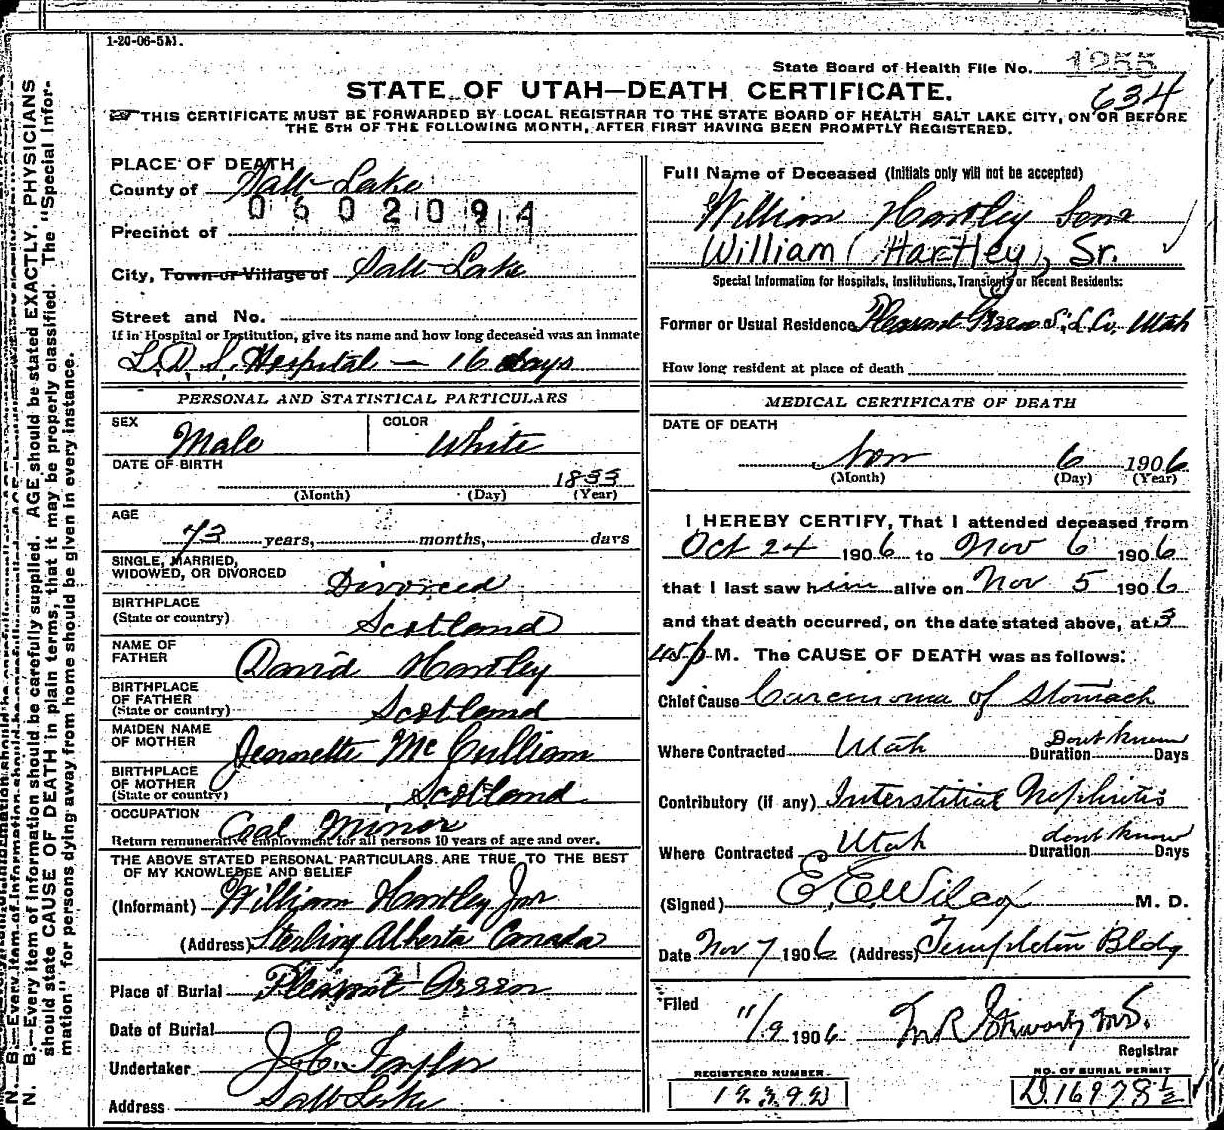 1-20-06-5M.
State Board of Health File No. 1255
634
STATE OF UTAH—DEATH CERTIFICATE.
THIS CERTIFICATE MUST BE FORWARDED BY LOCAL REGISTRAR TO THE STATE BOARD OF HEALTH SALT LAKE CITY, ON OR BEFORE
THE 5TH OF THE FOLLOWING MONTH, AFTER FIRST HAVING BEEN PROMPTLY REGISTERED.
N. B.—Every item of information should be carefully supplied. AGE should be stated EXACTLY. PHYSICIANS
should state CAUSE OF DEATH in plain terms, that it may be properly classified. The "Special Infor-
mation" for persons dying away from home should be given in every instance.
PLACE OF DEATH
County of Salt Lake
0602094
Precinct of
City, Town or Village of Salt Lake
Street and No.
If in Hospital or Institution, give its name and how long deceased was an inmate
L.D.S. Hospital — 16 days
PERSONAL AND STATISTICAL PARTICULARS
SEX Male COLOR White
DATE OF BIRTH 1833
(Month) (Day) (Year)
AGE
73 years, months, days
SINGLE, MARRIED,
WIDOWED, OR DIVORCED Divorced
BIRTHPLACE
(State or country) Scotland
NAME OF
FATHER David Hartley
BIRTHPLACE
OF FATHER
(State or country) Scotland
MAIDEN NAME
OF MOTHER Jennette McCulliam
BIRTHPLACE
OF MOTHER
(State or country) Scotland
OCCUPATION Coal Minor
Return remunerative employment for all persons 10 years of age and over.
THE ABOVE STATED PERSONAL PARTICULARS ARE TRUE TO THE BEST
OF MY KNOWLEDGE AND BELIEF
(Informant) William Hartley Jnr
(Address) Sterling Alberta Canada
Place of Burial Pleasant Green
Date of Burial
Undertaker J.E. Taylor
Address Salt Lake
Full Name of Deceased (Initials only will not be accepted)
William Hartley Senr
William (Hartley), Sr.
Special Information for Hospitals, Institutions, Transients or Recent Residents:
Former or Usual Residence Pleasant Green S.L. Co. Utah
How long resident at place of death
MEDICAL CERTIFICATE OF DEATH
DATE OF DEATH
Nov 6 1906
(Month) (Day) (Year)
I HEREBY CERTIFY, That I attended deceased from
Oct 24 1906 to Nov 6 1906
that I last saw him alive on Nov 5 1906
and that death occurred, on the date stated above, at 3
45 P M. The CAUSE OF DEATH was as follows:
Chief Cause Carcinoma of Stomach
Where Contracted Utah Duration Dont Know Days
Contributory (if any) Interstitial Nephritis
Where Contracted Utah Duration dont know Days
(Signed) E.E. Wilcox M. D.
Date Nov 7 1906 (Address) Templeton Bldg
Filed
11/9 1906
Registrar
REGISTERED NUMBER NO. OF BURIAL PERMIT
D.16978½